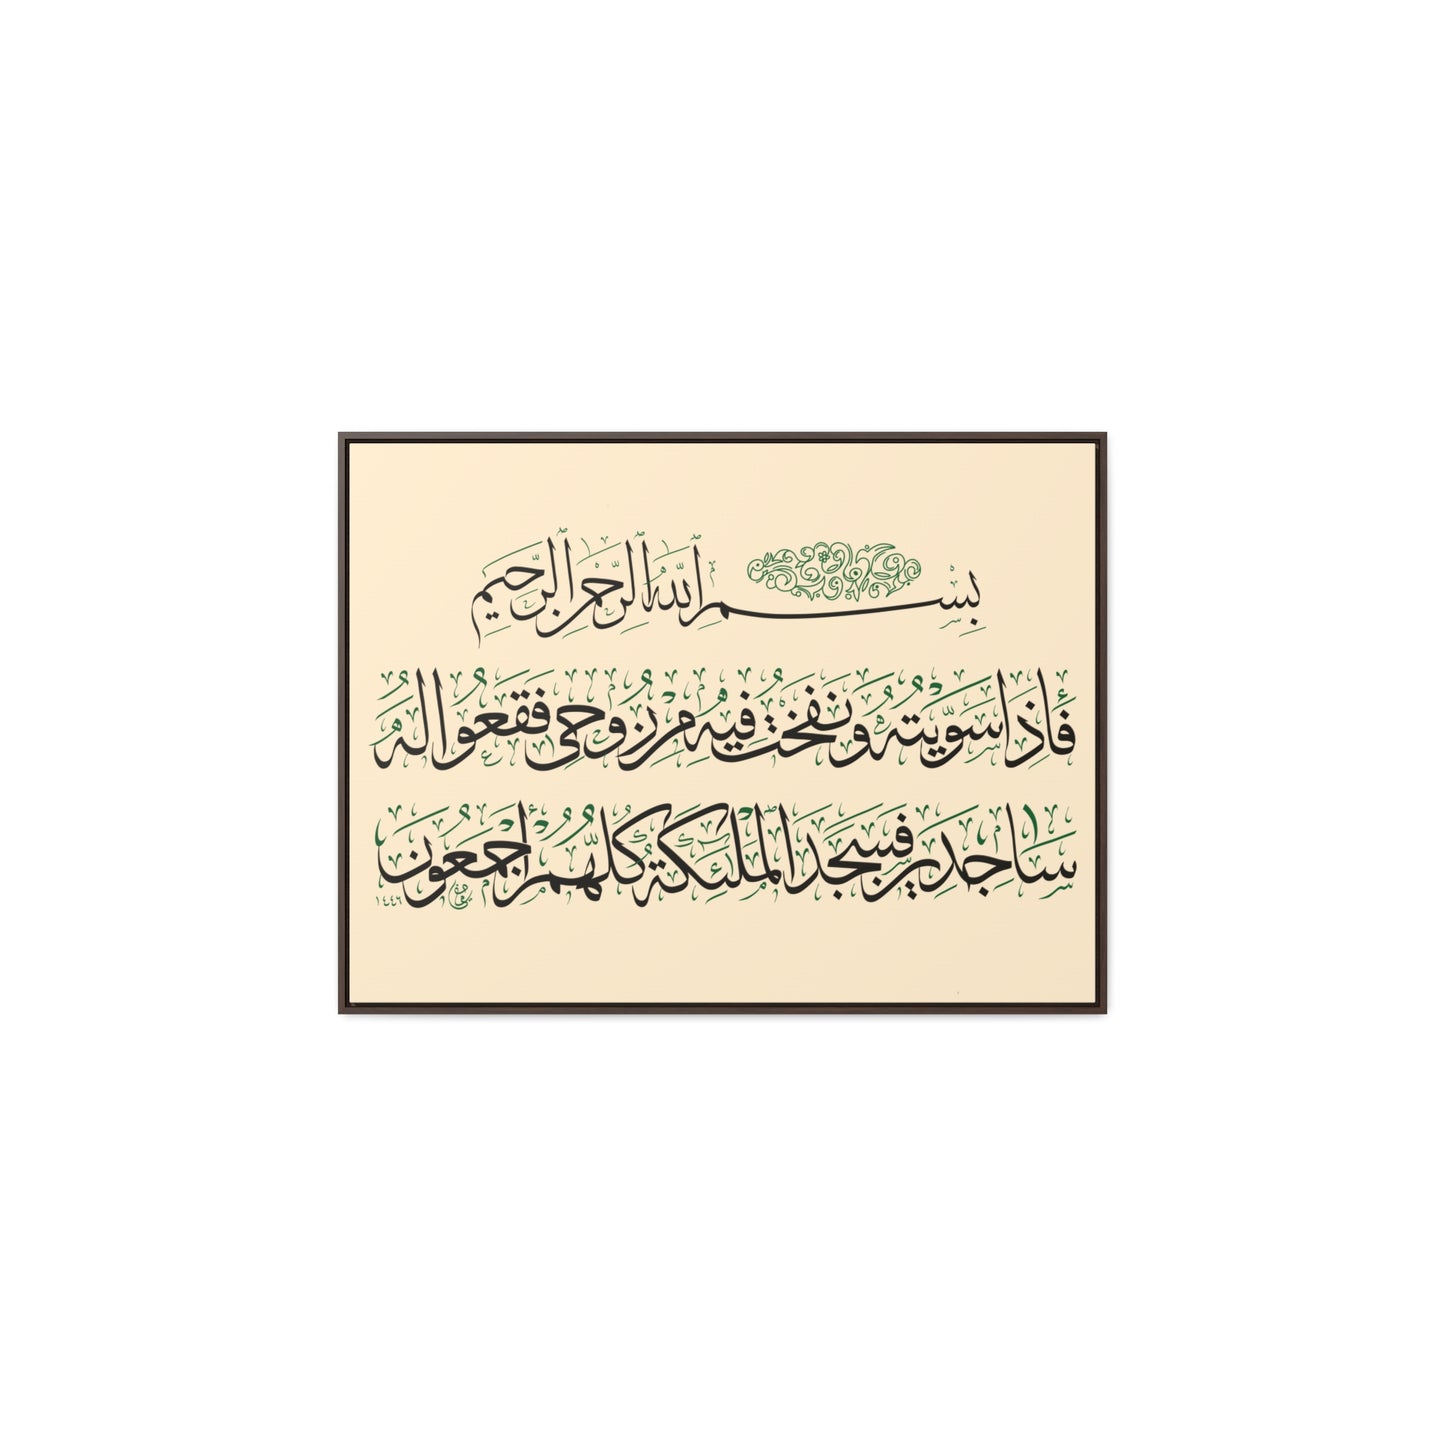 بِسْمِ ٱللَّهِ ٱلرَّحْمَٰنِ ٱلرَّحِيمِ
فَإِذَا سَوَّيْتُهُ وَنَفَخْتُ فِيهِ مِنْ رُوحِي فَقَعُوا لَهُ
سَاجِدِينَ فَسَجَدَ الْمَلَٰئِكَةُ كُلُّهُمْ أَجْمَعُونَ
١٤٤٦